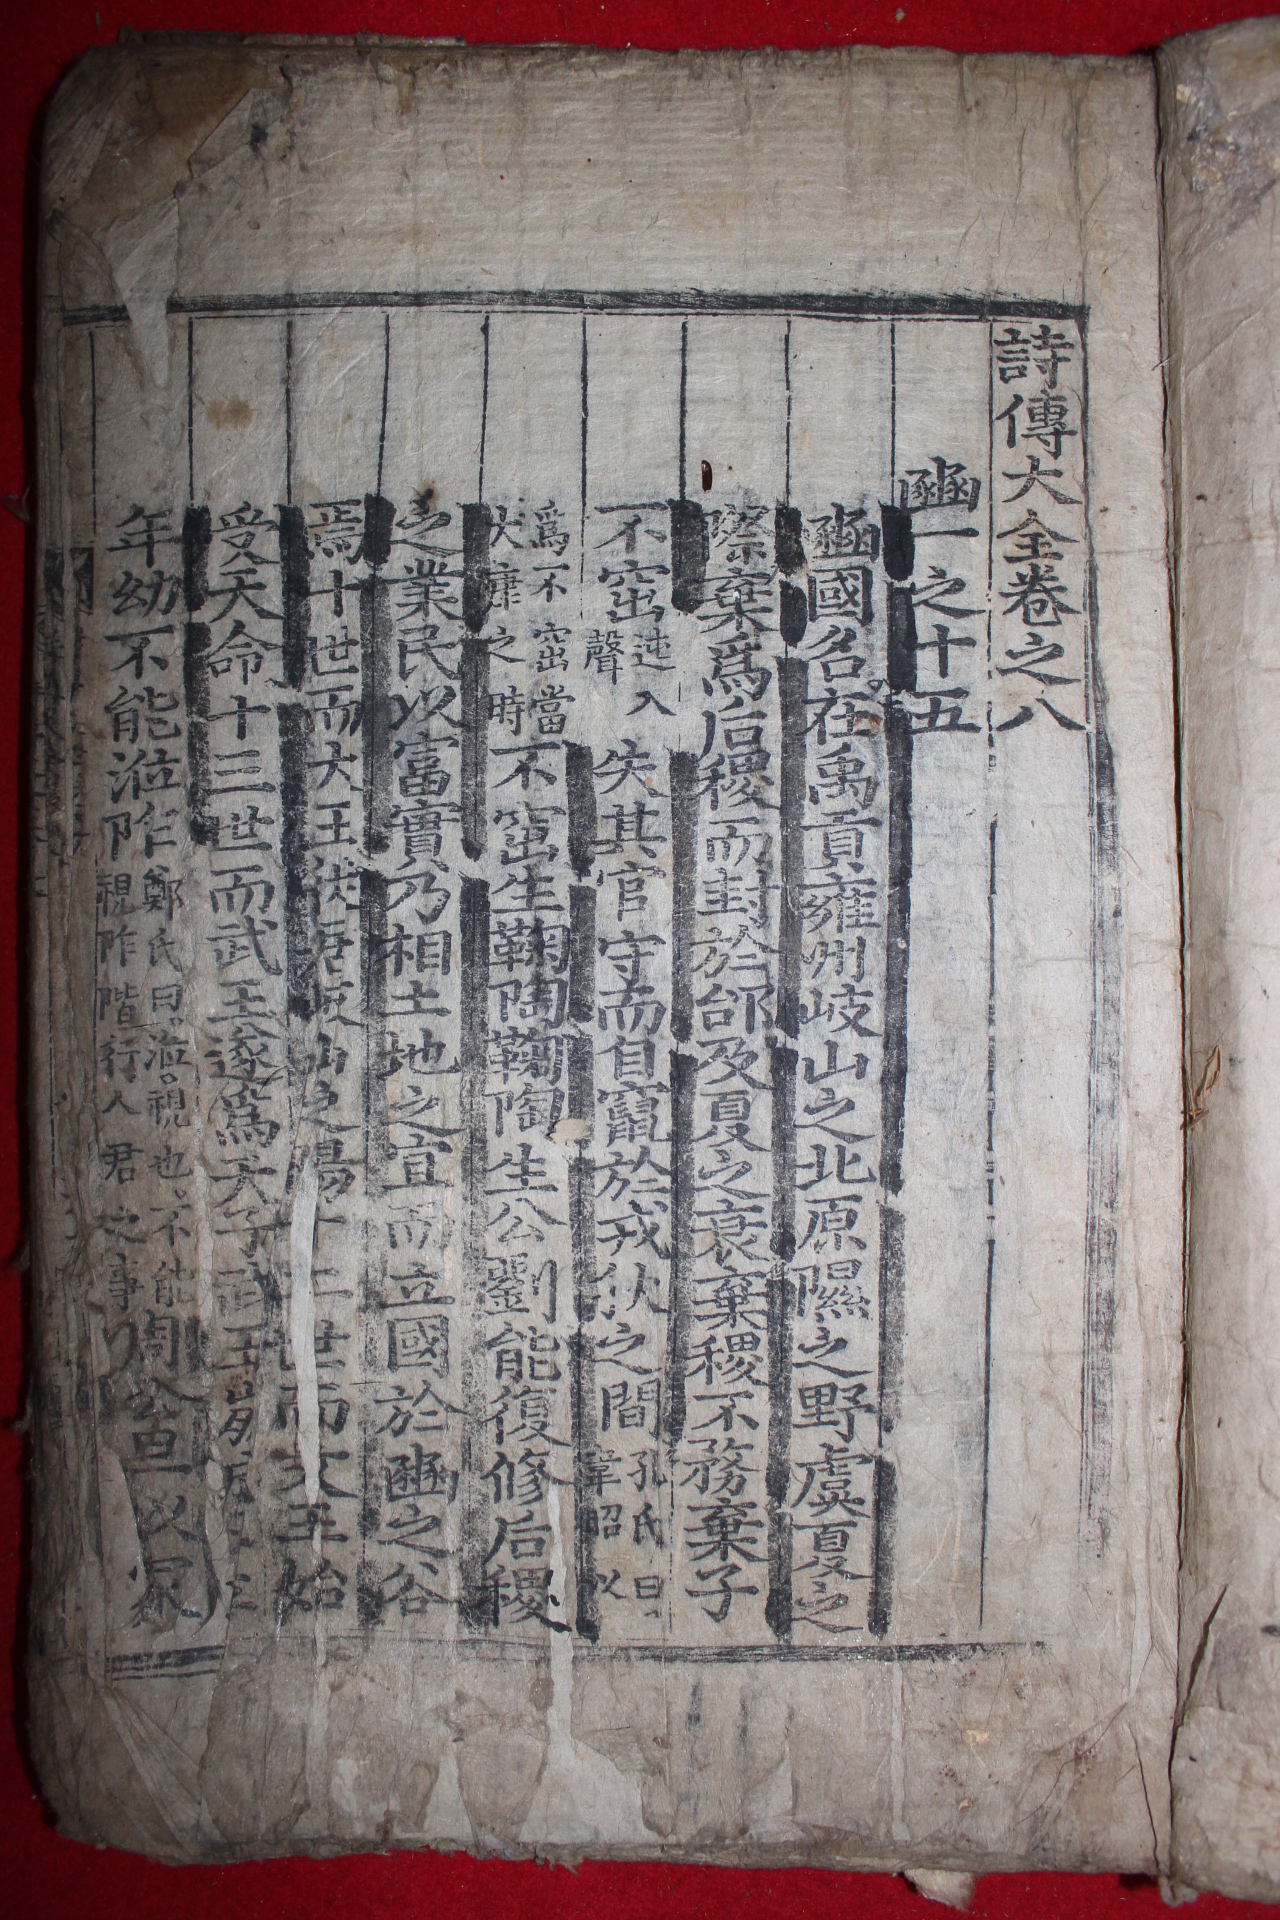 詩傳大全卷之八
豳一之十五
豳國名在禹貢雍州岐山之北原隰之野虞夏之
際棄爲后稷而封於邰及夏之衰棄稷不務棄子
不窋
聲
入
失其官守而自竄於戎狄之間
孔氏曰
韋昭以
爲不窋當
大康之時
不窋生鞠陶鞠陶生公劉能復修后稷
之業民以富實乃相土地之宜而立國於豳之谷
焉十世而大王徙居岐山之陽十二世而文王始
受天命十三世而武王遂爲天子武王崩
年幼不能涖阼
鄭氏曰涖視也不能
視阼階行人君之事
周公旦以冢